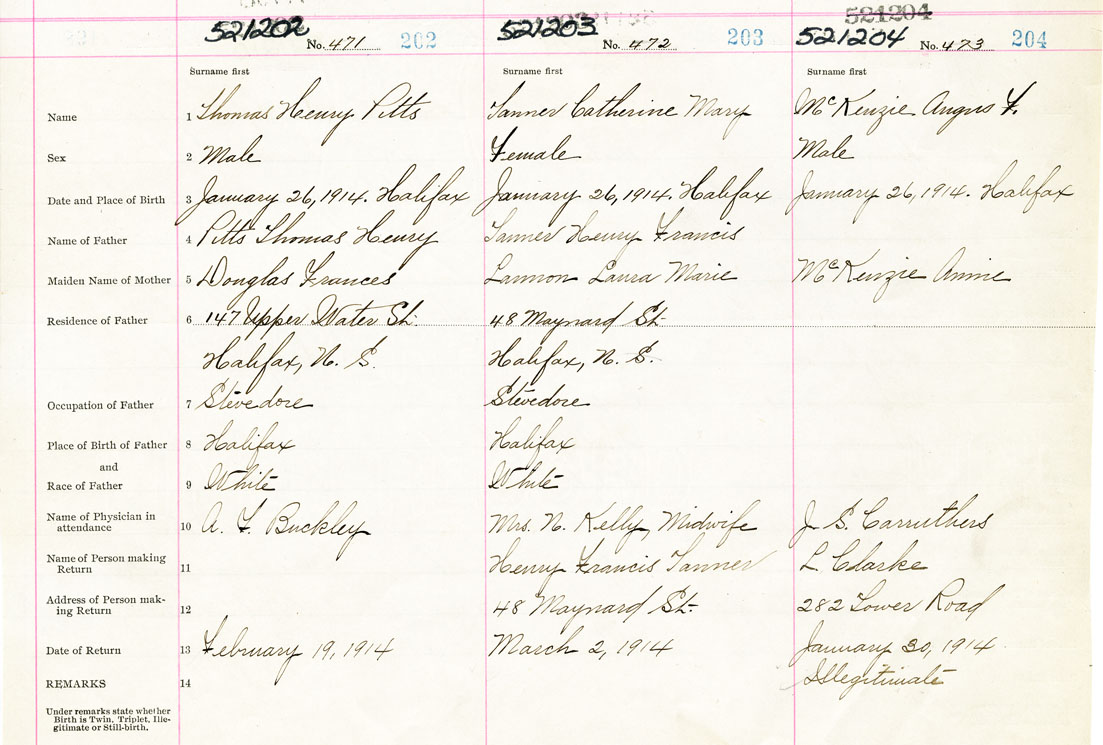 521202 521203 521204
521204
No. 471 202 No. 472 203 No. 473 204
Surname first Surname first Surname first
Name 1 Thomas Henry Pitts Tanner Catherine Mary McKenzie Angus F.
Sex 2 Male Female Male
Date and Place of Birth 3 January 26, 1914. Halifax January 26, 1914. Halifax January 26, 1914. Halifax
Name of Father 4 Pitts Thomas Henry Tanner Henry Francis
Maiden Name of Mother 5 Douglas Frances Lannon Laura Marie McKenzie Annie
Residence of Father 6 147 Upper Water St. 48 Maynard St.
Halifax, N. S. Halifax, N. S.
Occupation of Father 7 Stevedore Stevedore
Place of Birth of Father 8 Halifax Halifax
and
Race of Father 9 White White
Name of Physician in
attendance 10 A. F. Buckley Mrs. N. Kelly, Midwife J. S. Carruthers
Name of Person making
Return 11 Henry Francis Tanner L Clarke
Address of Person mak-
ing Return 12 48 Maynard St. 282 Tower Road
Date of Return 13 February 19, 1914 March 2, 1914 January 30, 1914
REMARKS 14 Illegitimate
Under remarks state whether
Birth is Twin, Triplet, Ille-
gitimate or Still-birth.